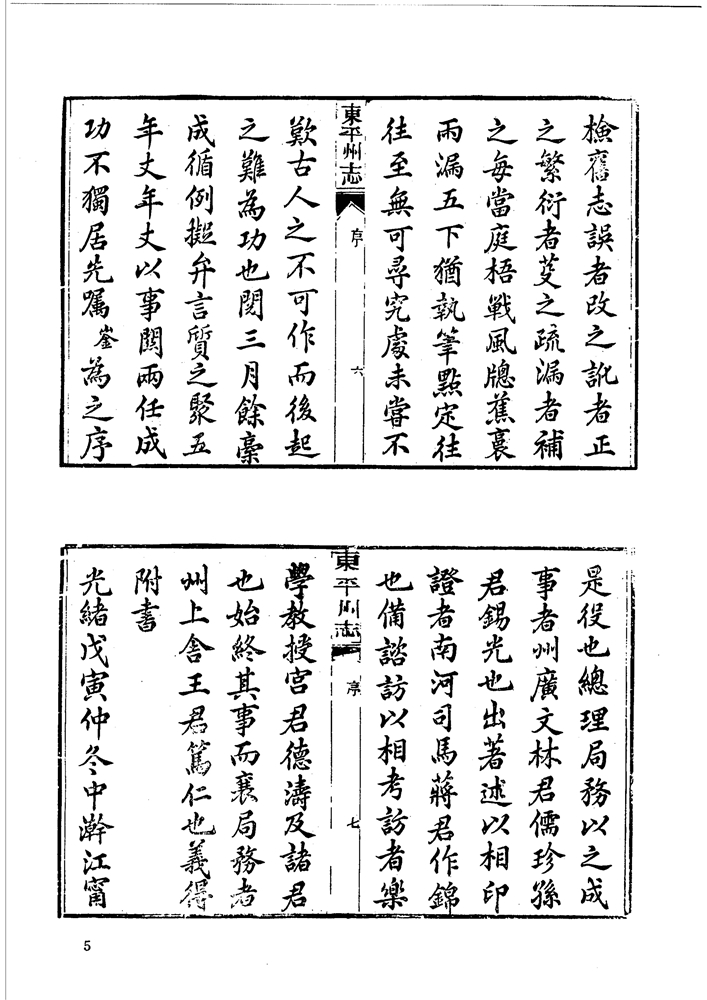 檢舊志誤者改之訛者正
之繁衍者芟之疏漏者補
之每當庭梧戰風牕蕉裛
雨漏五下猶執筆點定往
往至無可尋究處未嘗不
東平州志
序
六
歎古人之不可作而後起
之難為功也閱三月餘稾
成循例擬弁言質之聚五
年丈年丈以事關兩任成
功不獨居先囑崟為之序
是役也總理局務以之成
事者州廣文林君儒珍孫
君錫光也出著述以相印
證者南河司馬蔣君作錦
也備諮訪以相考訪者樂
東平州志
序
七
學教授宫君德濤及諸君
也始終其事而襄局務者
州上舍王君篤仁也義得
附書
光緒戊寅仲冬中澣江甯
5